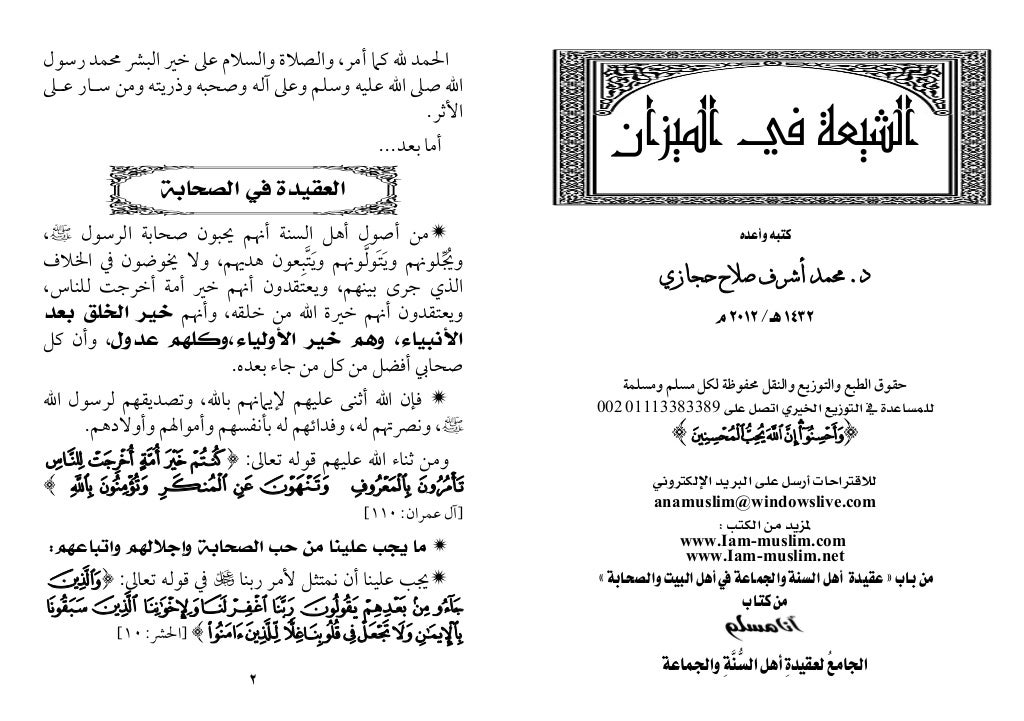 الشيعة في الميزان
كتبه وأعده
د. محمد أشرف صلاح حجازي
١٤٣٢ هـ / ٢٠١٢ م
حقوق الطبع والتوزيع والنقل محفوظة لكل مسلم ومسلمة
للمساعدة في التوزيع الخيري اتصل على 01113383389 002
﴿وَأَحْسِنُوٓا۟ إِنَّ ٱللَّهَ يُحِبُّ ٱلْمُحْسِنِينَ﴾
للاقتراحات أرسل على البريد الإلكتروني
anamuslim@windowslive.com
لمزيد من الكتب :
www.Iam-muslim.com
www.Iam-muslim.net
من باب « عقيدة أهل السنة والجماعة في أهل البيت والصحابة »
من كتاب
أنا مسلم
الجامعُ لعقيدةِ أهل السُّنَّةِ والجماعة
الحمد لله كما أمر، والصلاة والسلام على خير البشر محمد رسول
الله صلى الله عليه وسلم وعلى آله وصحبه وذريته ومن سار على
الأثر.
أما بعد...
العقيدة في الصحابة
✷من أصول أهل السنة أنهم يحبون صحابة الرسول ﷺ،
ويُجِلُّونهم ويَتَولَّونهم ويَتَّبِعون هديهم، ولا يخوضون في الخلاف
الذي جرى بينهم، ويعتقدون أنهم خير أمة أخرجت للناس،
ويعتقدون أنهم خيرة الله من خلقه، وأنهم خير الخلق بعد
الأنبياء، وهم خير الأولياء،وكلهم عدول، وأن كل
صحابي أفضل من كل من جاء بعده.
✷ فإن الله أثنى عليهم لإيمانهم بالله، وتصديقهم لرسول الله
ﷺ، ونصرتهم له، وفدائهم له بأنفسهم وأموالهم وأولادهم.
ومن ثناء الله عليهم قوله تعالى: ﴿ كُنتُمْ خَيْرَ أُمَّةٍ أُخْرِجَتْ لِلنَّاسِ
تَأْمُرُونَ بِٱلْمَعْرُوفِ وَتَنْهَوْنَ عَنِ ٱلْمُنكَرِ وَتُؤْمِنُونَ بِٱللَّهِ ﴾
[آل عمران: ١١٠]
✷ ما يجب علينا من حب الصحابة وإجلالهم واتباعهم:
✷يجب علينا أن نمتثل لأمر ربنا ﷻ في قوله تعالى: ﴿وَٱلَّذِينَ
جَآءُو مِنۢ بَعْدِهِمْ يَقُولُونَ رَبَّنَا ٱغْفِرْ لَنَا وَلِإِخْوَٰنِنَا ٱلَّذِينَ سَبَقُونَا
بِٱلْإِيمَٰنِ وَلَا تَجْعَلْ فِى قُلُوبِنَا غِلًّا لِّلَّذِينَ ءَامَنُوا۟ ﴾ [الحشر: ١٠]
٢